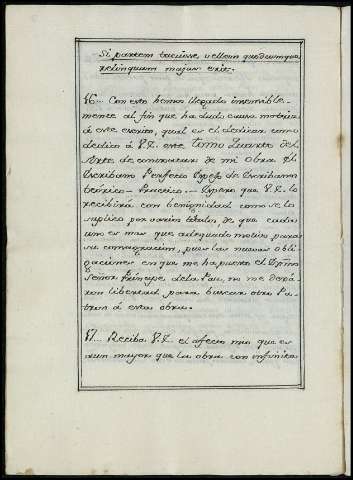 Si partem tacuisse vellem quodcumque
relinquam majus erit.
16... Con esto hemos llegado insensible-
mente al fin que ha dado causa motriz
á este escrito, qual es el dedicar como
dedico á V.E. este Tomo Quarto del
Arte de de mi obra El
Escribano Perfecto Espejo de Escribanos
teórico - Practico. - Espero que V.E. lo
recibirá con benignidad como se lo
suplico por varios titulos, de que cada
uno es mas que adequado motivo para
su consagracion, pues las nuevas obli-
gaciones en que me ha puesto el
señor Príncipe de la Paz, no me dexa-
ron libertad para buscar otro Pa-
trono á esta obra.
17... Reciba V.E. el afecto mio que es
aun mayor que la obra con infinita